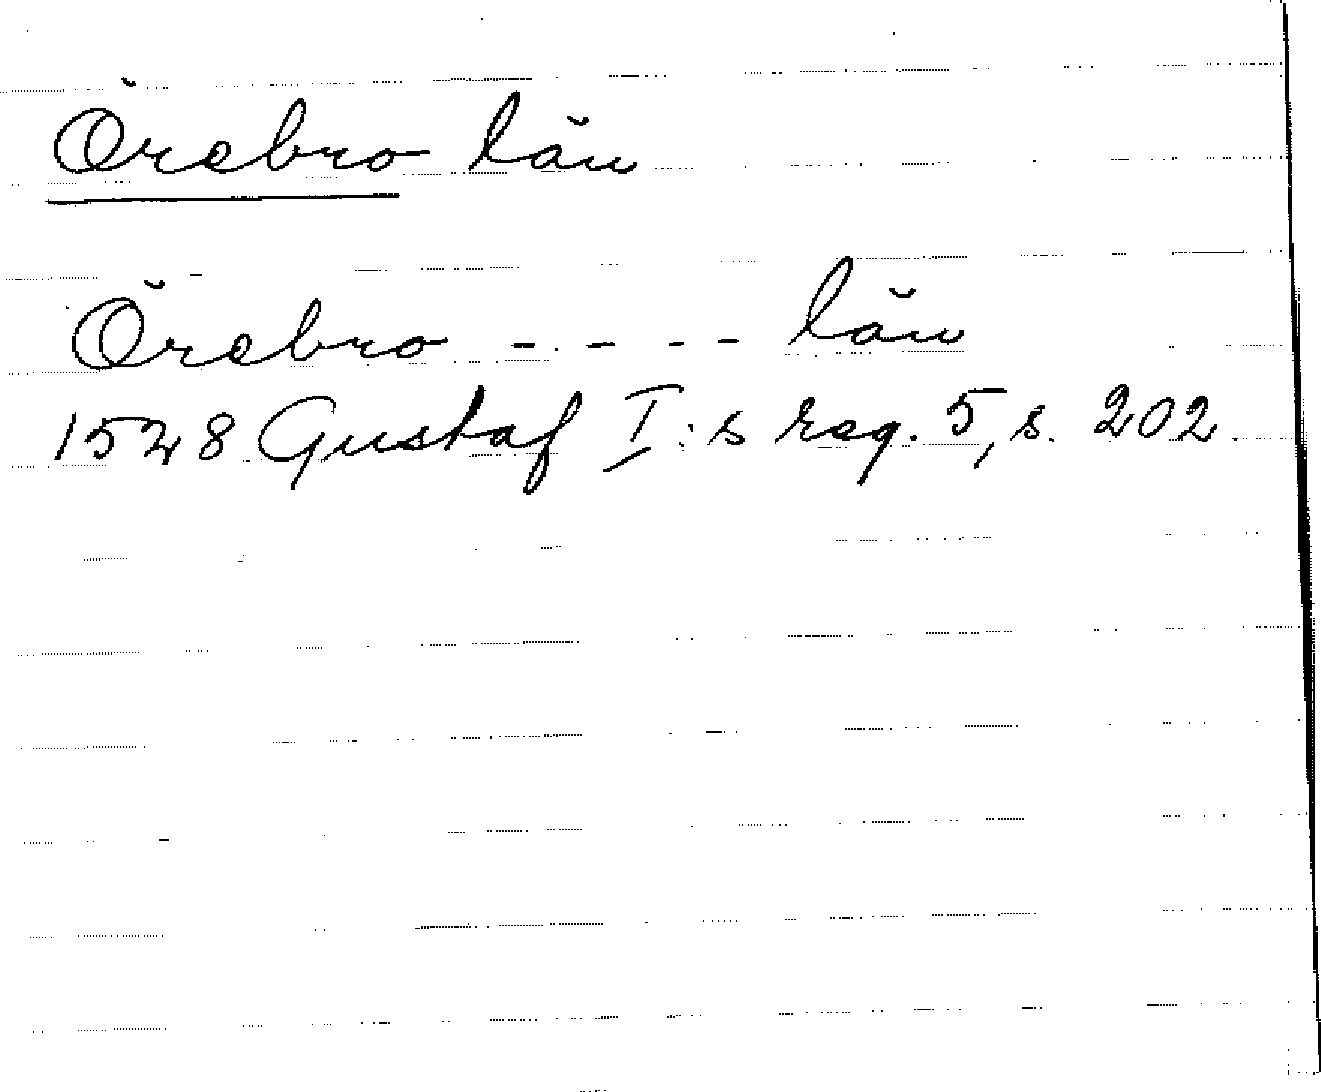 Örebro län
Örebro - - - - län
1528 Gustaf I:s reg. 5, s. 202